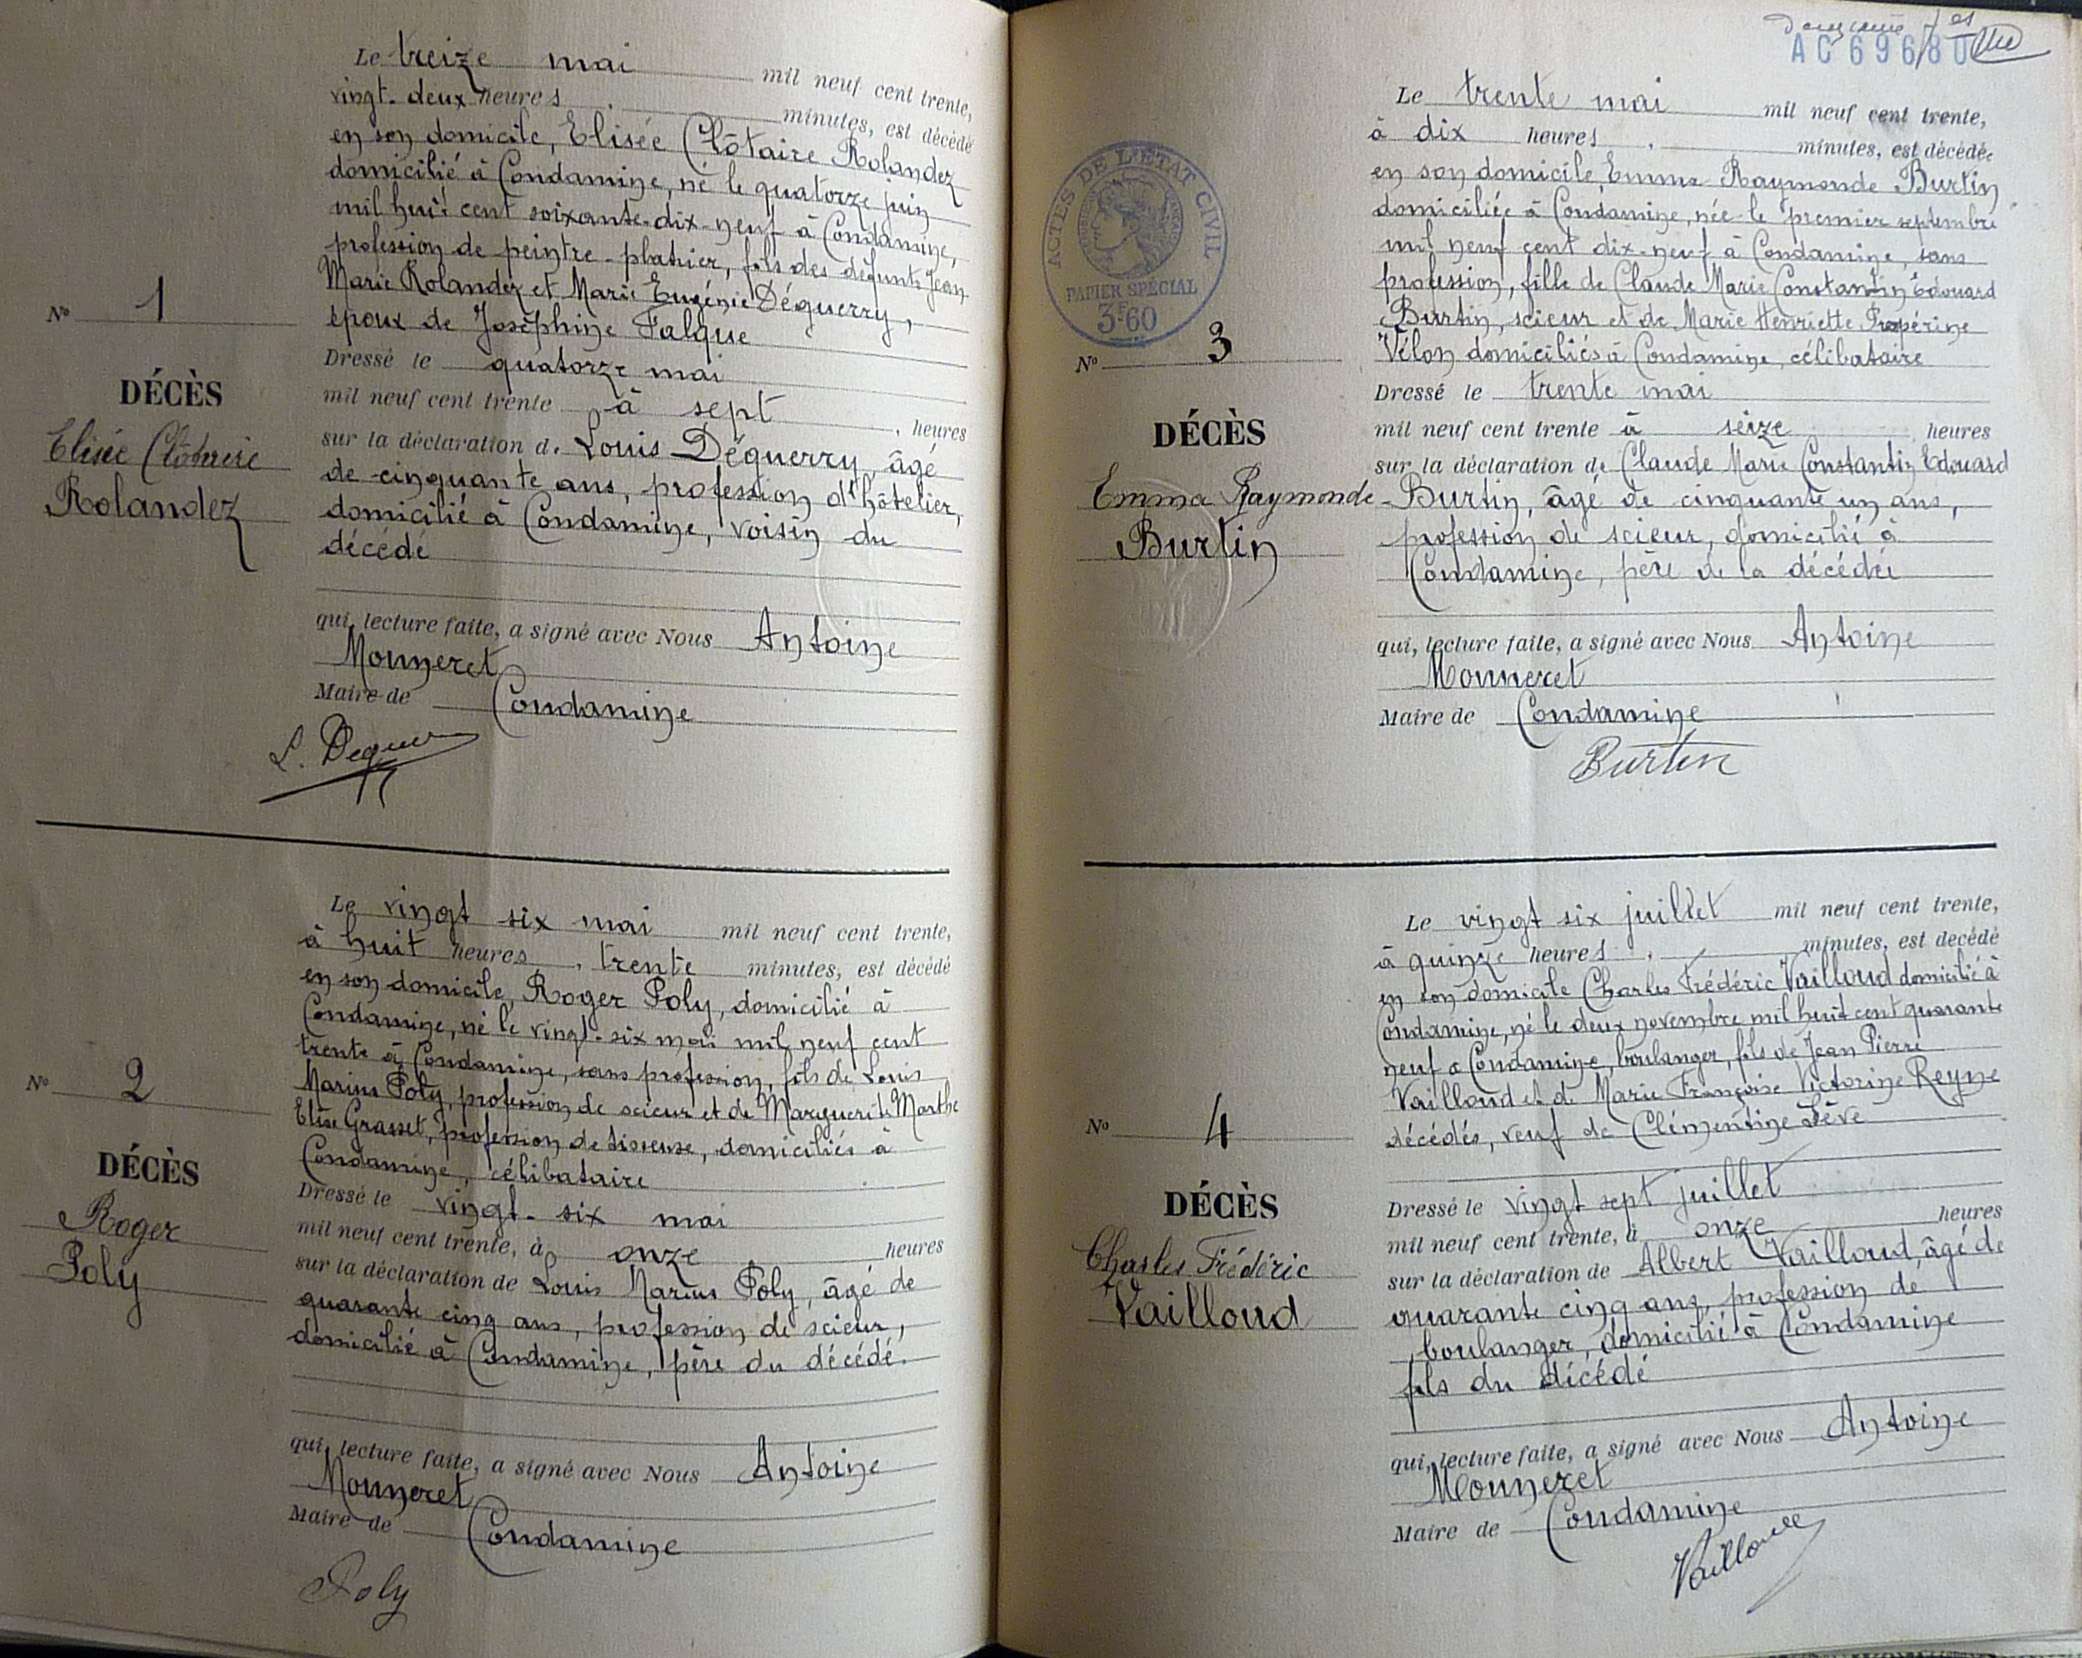 Le treize mai mil neuf cent trente,
vingt-deux heures minutes, est décédé
en son domicile, Elisée Clôtaire Rolandez
domicilié à Condamine, né le quatorze juin
mil huit cent soixante-dix-neuf à Condamine,
profession de peintre-plâtrier, fils des défunts Jean
Marie Rolandez et Marie Eugénie Déguerry,
époux de Joséphine Falque
Nº 1
DÉCÈS
Elisée Clôtaire
Rolandez
Dressé le quatorze mai
mil neuf cent trente à sept heures
sur la déclaration de Louis Déguerry, âgé
de cinquante ans, profession d'hôtelier,
domicilié à Condamine, voisin du
décédé
qui, lecture faite, a signé avec Nous Antoine
Monneret
Maire de Condamine
Le vingt six mai mil neuf cent trente,
à huit heures, trente minutes, est décédé
en son domicile, Roger Poly, domicilié à
Condamine, né le vingt-six mai mil neuf cent
trente à Condamine, sans profession, fils de Louis
Marius Poly, profession de scieur et de Marguerite Marthe
Elise Grasset, profession de tisseuse, domiciliés à
Condamine, célibataire
Nº 2
DÉCÈS
Roger
Poly
Dressé le vingt-six mai
mil neuf cent trente, à onze heures
sur la déclaration de Louis Marius Poly, âgé de
quarante cinq ans, profession de scieur,
domicilié à Condamine, père du décédé.
qui, lecture faite, a signé avec Nous Antoine
Monneret
Maire de Condamine
Poly
AC 696/80
ACTES DE L'ÉTAT CIVIL
PAPIER SPÉCIAL
3F60
Le trente mai mil neuf cent trente,
à dix heures, minutes, est décédée
en son domicile, Emma Raymonde Burtin
domiciliée à Condamine, née le premier septembre
mil neuf cent dix-neuf à Condamine, sans
profession, fille de Claude Marie Constantin Edouard
Burtin, scieur et de Marie Henriette Prospérine
Vélon domiciliés à Condamine, célibataire
Nº 3
DÉCÈS
Emma Raymonde
Burtin
Dressé le trente mai
mil neuf cent trente à seize heures
sur la déclaration de Claude Marie Constantin Edouard
Burtin, âgé de cinquante un ans,
profession de scieur, domicilié à
Condamine, père de la décédée
qui, lecture faite, a signé avec Nous Antoine
Monneret
Maire de Condamine
Burtin
Le vingt six juillet mil neuf cent trente,
à quinze heures, minutes, est décédé
en son domicile Charles Frédéric Vailloud domicilié à
Condamine, né le deux novembre mil huit cent quarante
neuf à Condamine, boulanger, fils de Jean Pierre
Vailloud et de Marie Françoise Victorine Reyne
décédés, veuf de Clémentine Fève
Nº 4
DÉCÈS
Charles Frédéric
Vailloud
Dressé le vingt sept juillet
mil neuf cent trente, à onze heures
sur la déclaration de Albert Vailloud, âgé de
quarante cinq ans, profession de
boulanger, domicilié à Condamine
fils du décédé
qui, lecture faite, a signé avec Nous Antoine
Monneret
Maire de Condamine